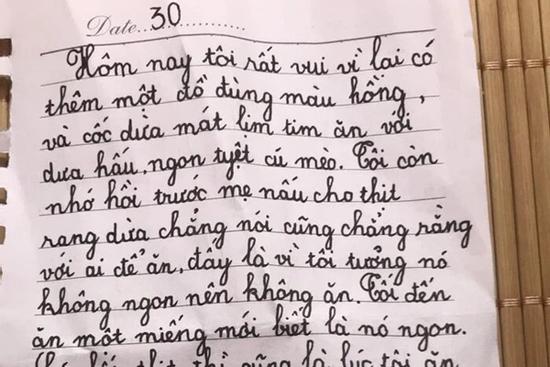 Date...30............
Hôm nay tôi rất vui vì lai có
thêm một đồ dùng màu hồng,
và cốc dừa mát lim tim ăn với
dưa hấu, ngon tuyệt cú mèo. Tôi còn
nhớ hồi trước mẹ nấu cho thịt
rang dừa chẳng nói cũng chẳng rằng
với ai để ăn, đây là vì tôi tưởng nó
không ngon nên không ăn. Tối đến
ăn một miếng mới biết là nó ngon.
thịt thì cũng là lúc tôi ăn